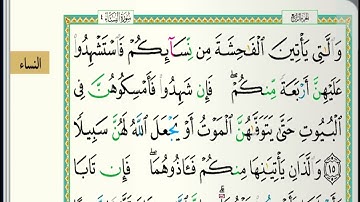 الجزء الرابع
سورة النساء ٤
النساء
وَالَّٰتِي يَأْتِينَ الْفَاحِشَةَ مِن نِّسَائِكُمْ فَاسْتَشْهِدُوا
عَلَيْهِنَّ أَرْبَعَةً مِّنكُمْ ۖ فَإِن شَهِدُوا فَأَمْسِكُوهُنَّ فِي
الْبُيُوتِ حَتَّىٰ يَتَوَفَّاهُنَّ الْمَوْتُ أَوْ يَجْعَلَ اللَّهُ لَهُنَّ سَبِيلًا
١٥ وَالَّذَانِ يَأْتِيَانِهَا مِنكُمْ فَآذُوهُمَا ۖ فَإِن تَابَا